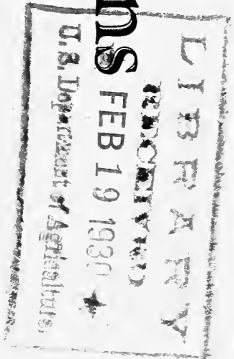 LIBRARY
RECEIVED
FEB 19 1930
U. S. Department of Agriculture
ns